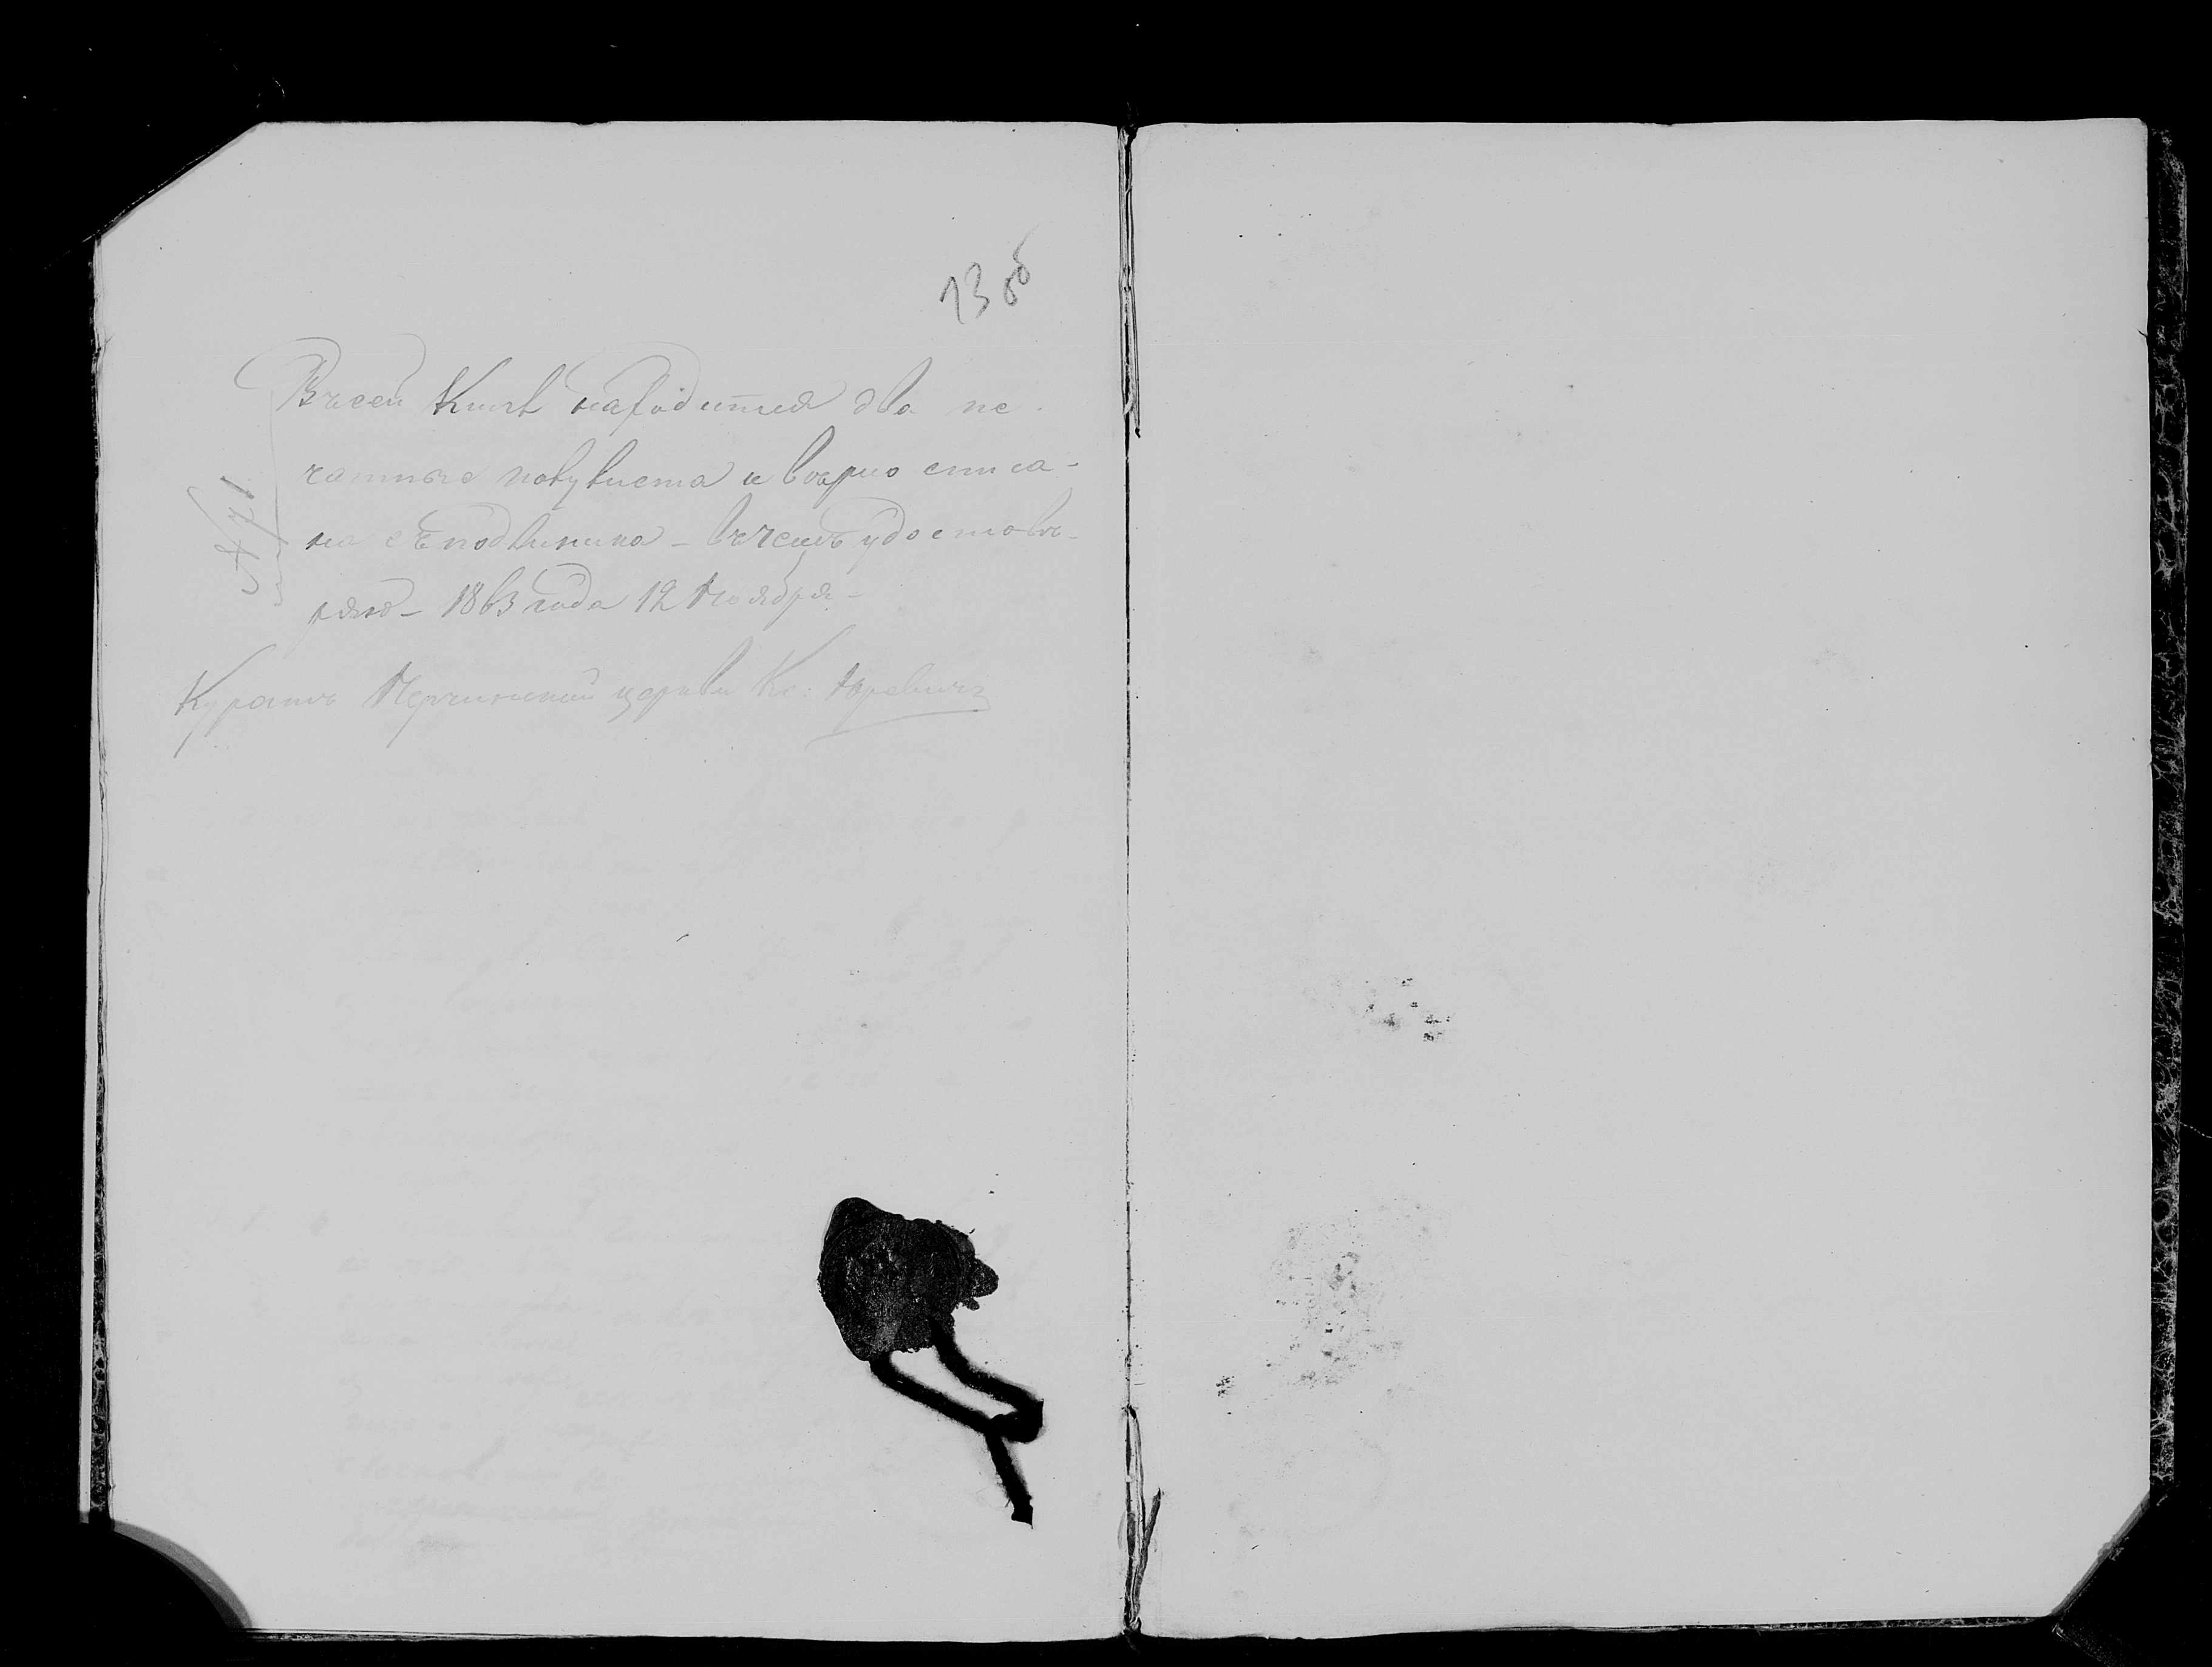 13 об
Въ сей Книгѣ находится два пе-
чатные полулиста и вѣрно списа-
на съ подлинника – въ чемъ удостовѣ-
ряю – 1863 года 12 Ноября –
Куратъ Нерчинской церкви Кс: Юревичъ